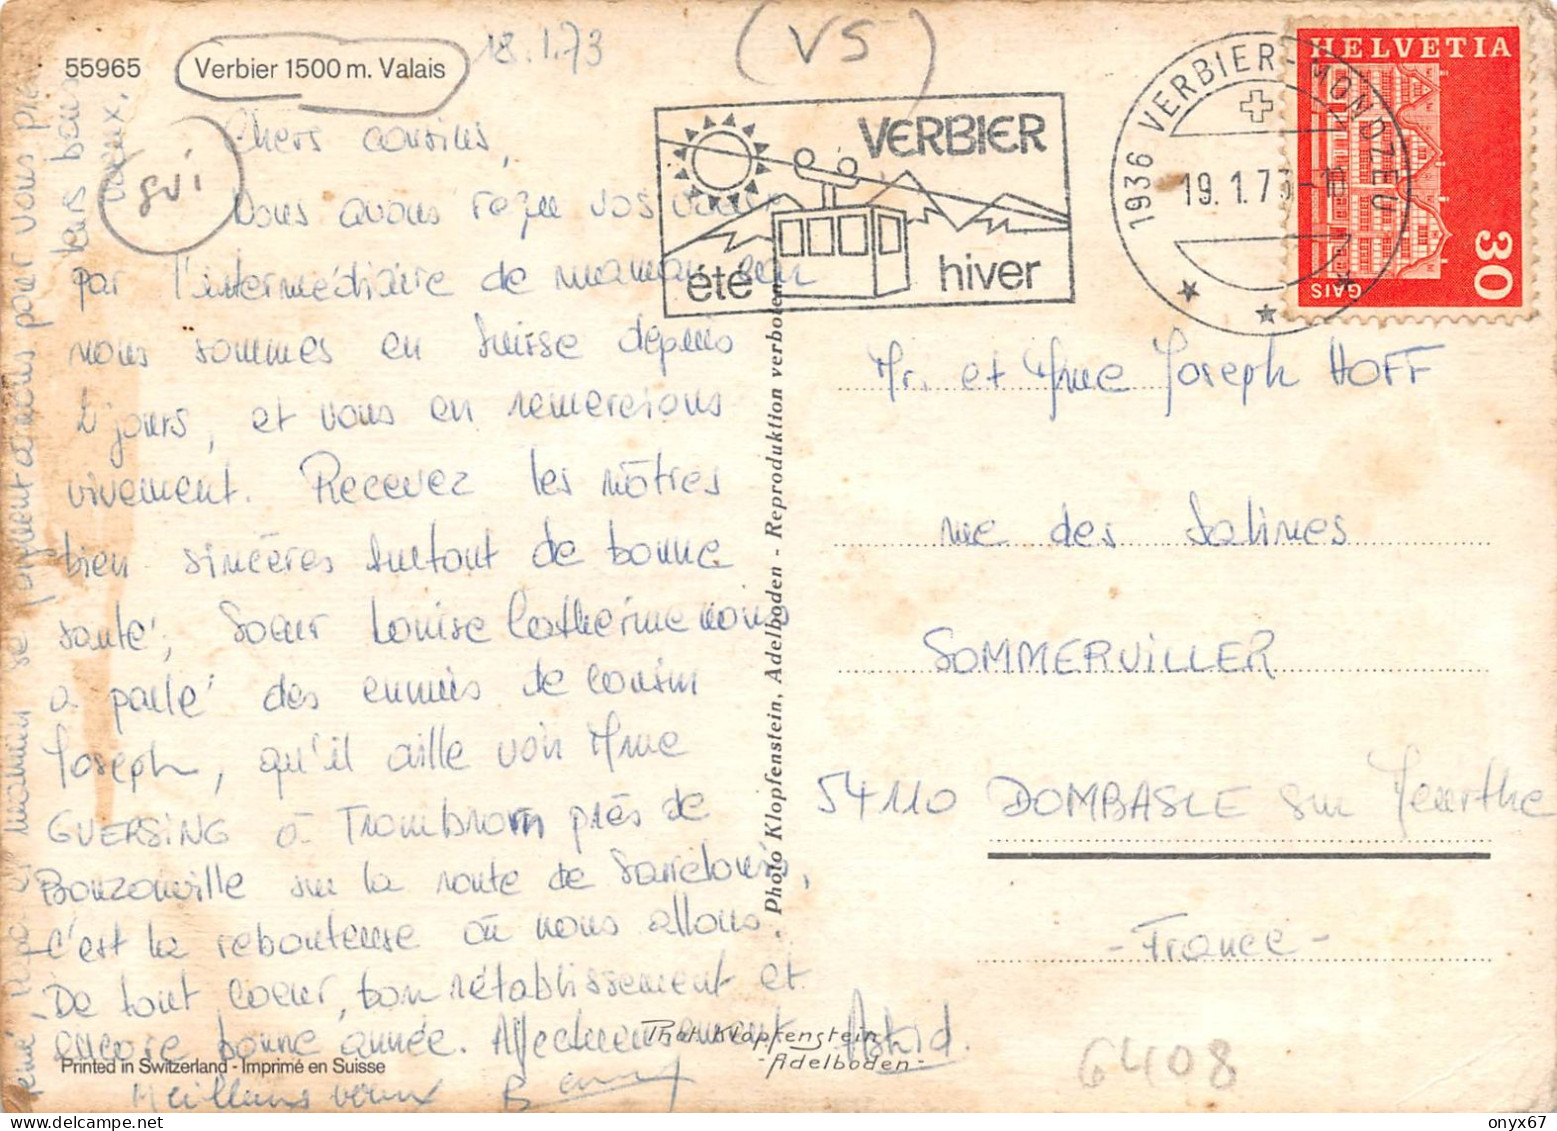 55965
Verbier 1500 m. Valais
18.1.73
(VS)
gvi
Chers cousins,
Nous avons reçu vos vœux
par l'intermédiaire de maman car
nous sommes en Suisse depuis
jours, et vous en remercions
vivement. Recevez les nôtres
bien sincères surtout de bonne
santé, Soeur Louise Catherine nous
a parlé des ennuis de cousin
Joseph, qu'il aille voir Mme
GUERSING à Tromborn près de
Bouzonville sur la route de Sarrelouis,
c'est la rebouteuse où nous allons.
De tout coeur, bon rétablissement et
encore bonne année. Affectueusement Astrid.
Meilleurs vœux
papa et maman se joignent à nous pour vous
leurs bons
vœux.
Printed in Switzerland - Imprimé en Suisse
Phot. Klopfenstein
- Adelboden -
Photo Klopfenstein, Adelboden - Reproduktion verboten
VERBIER
été hiver
1936 VERBIER-MONDZEU
19.1.73-18
HELVETIA
30
GAIS
Mr. et Mme Joseph HOFF
rue des Salines
SOMMERVILLER
54110 DOMBASLE sur Meurthe
- France -
6408
onyx67